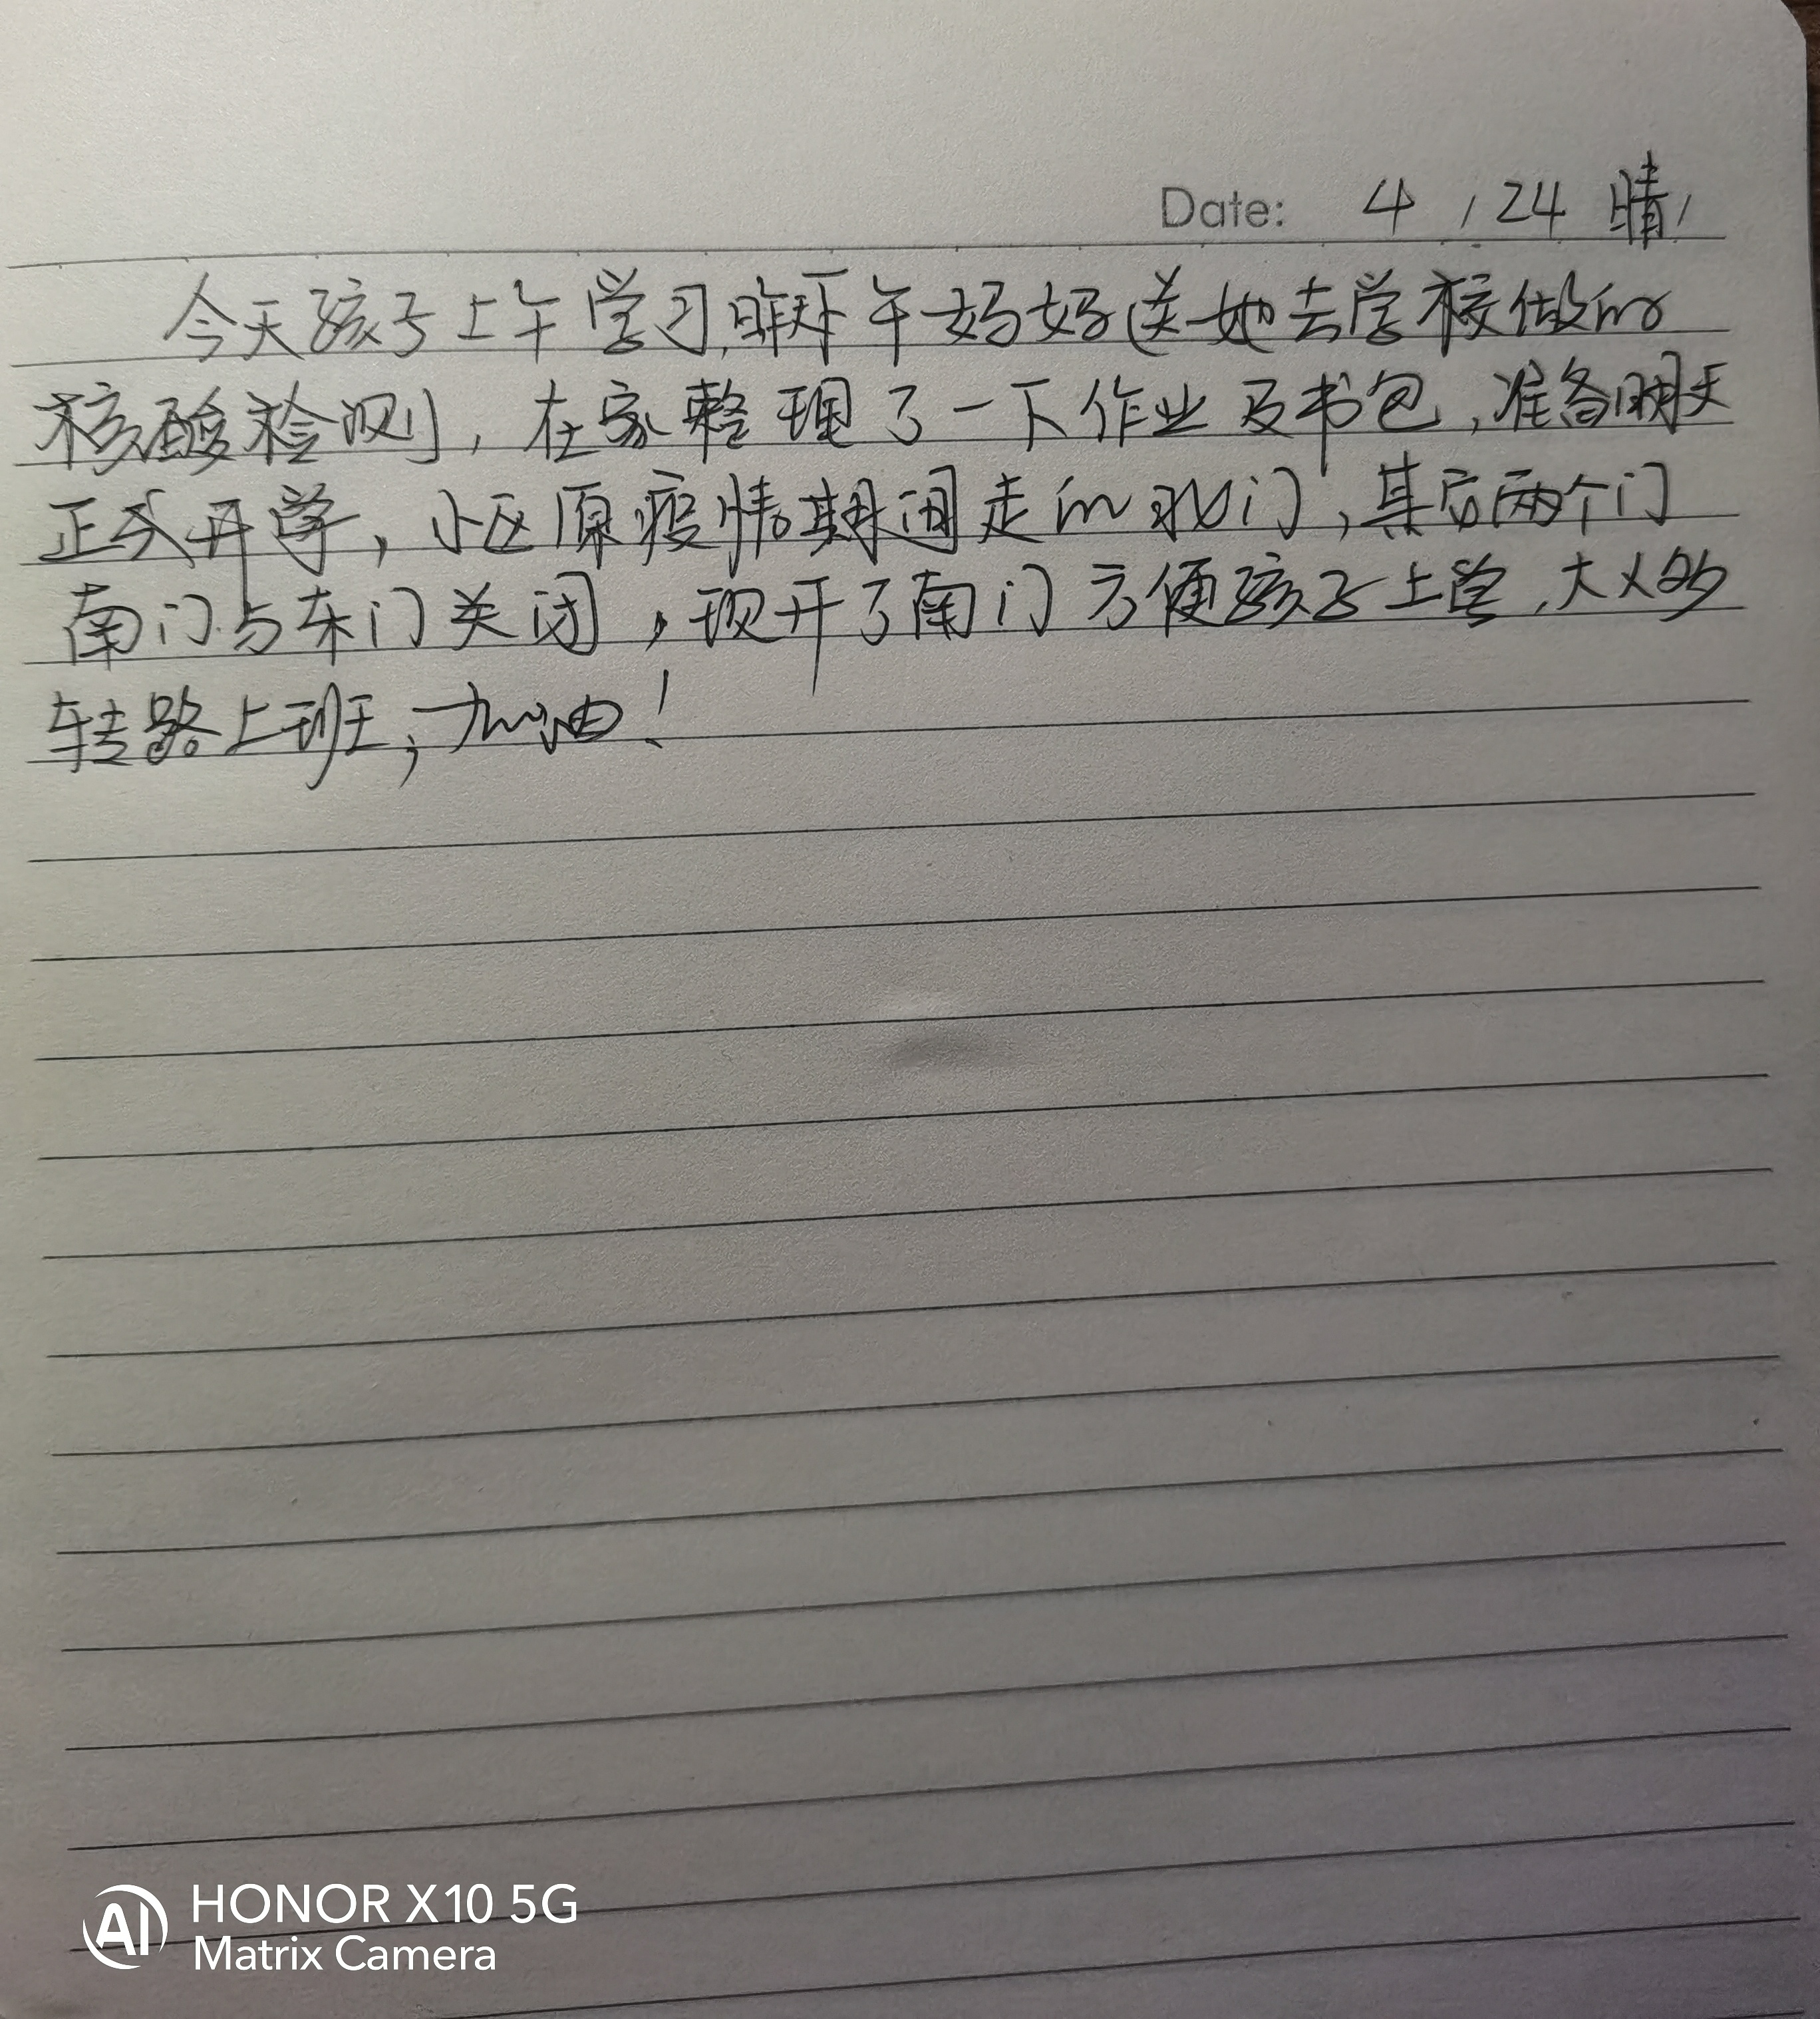 Date: 4 / 24 晴 /
今天孩子上午学习,昨天下午妈妈送她去学校做的
核酸检测,在家整理了一下作业及书包,准备明天
正式开学,小区原疫情期间走的北门,其后两个门
南门与东门关闭,现开了南门方便孩子上学,大人多
转路上班,加油!
HONOR X10 5G
Matrix Camera